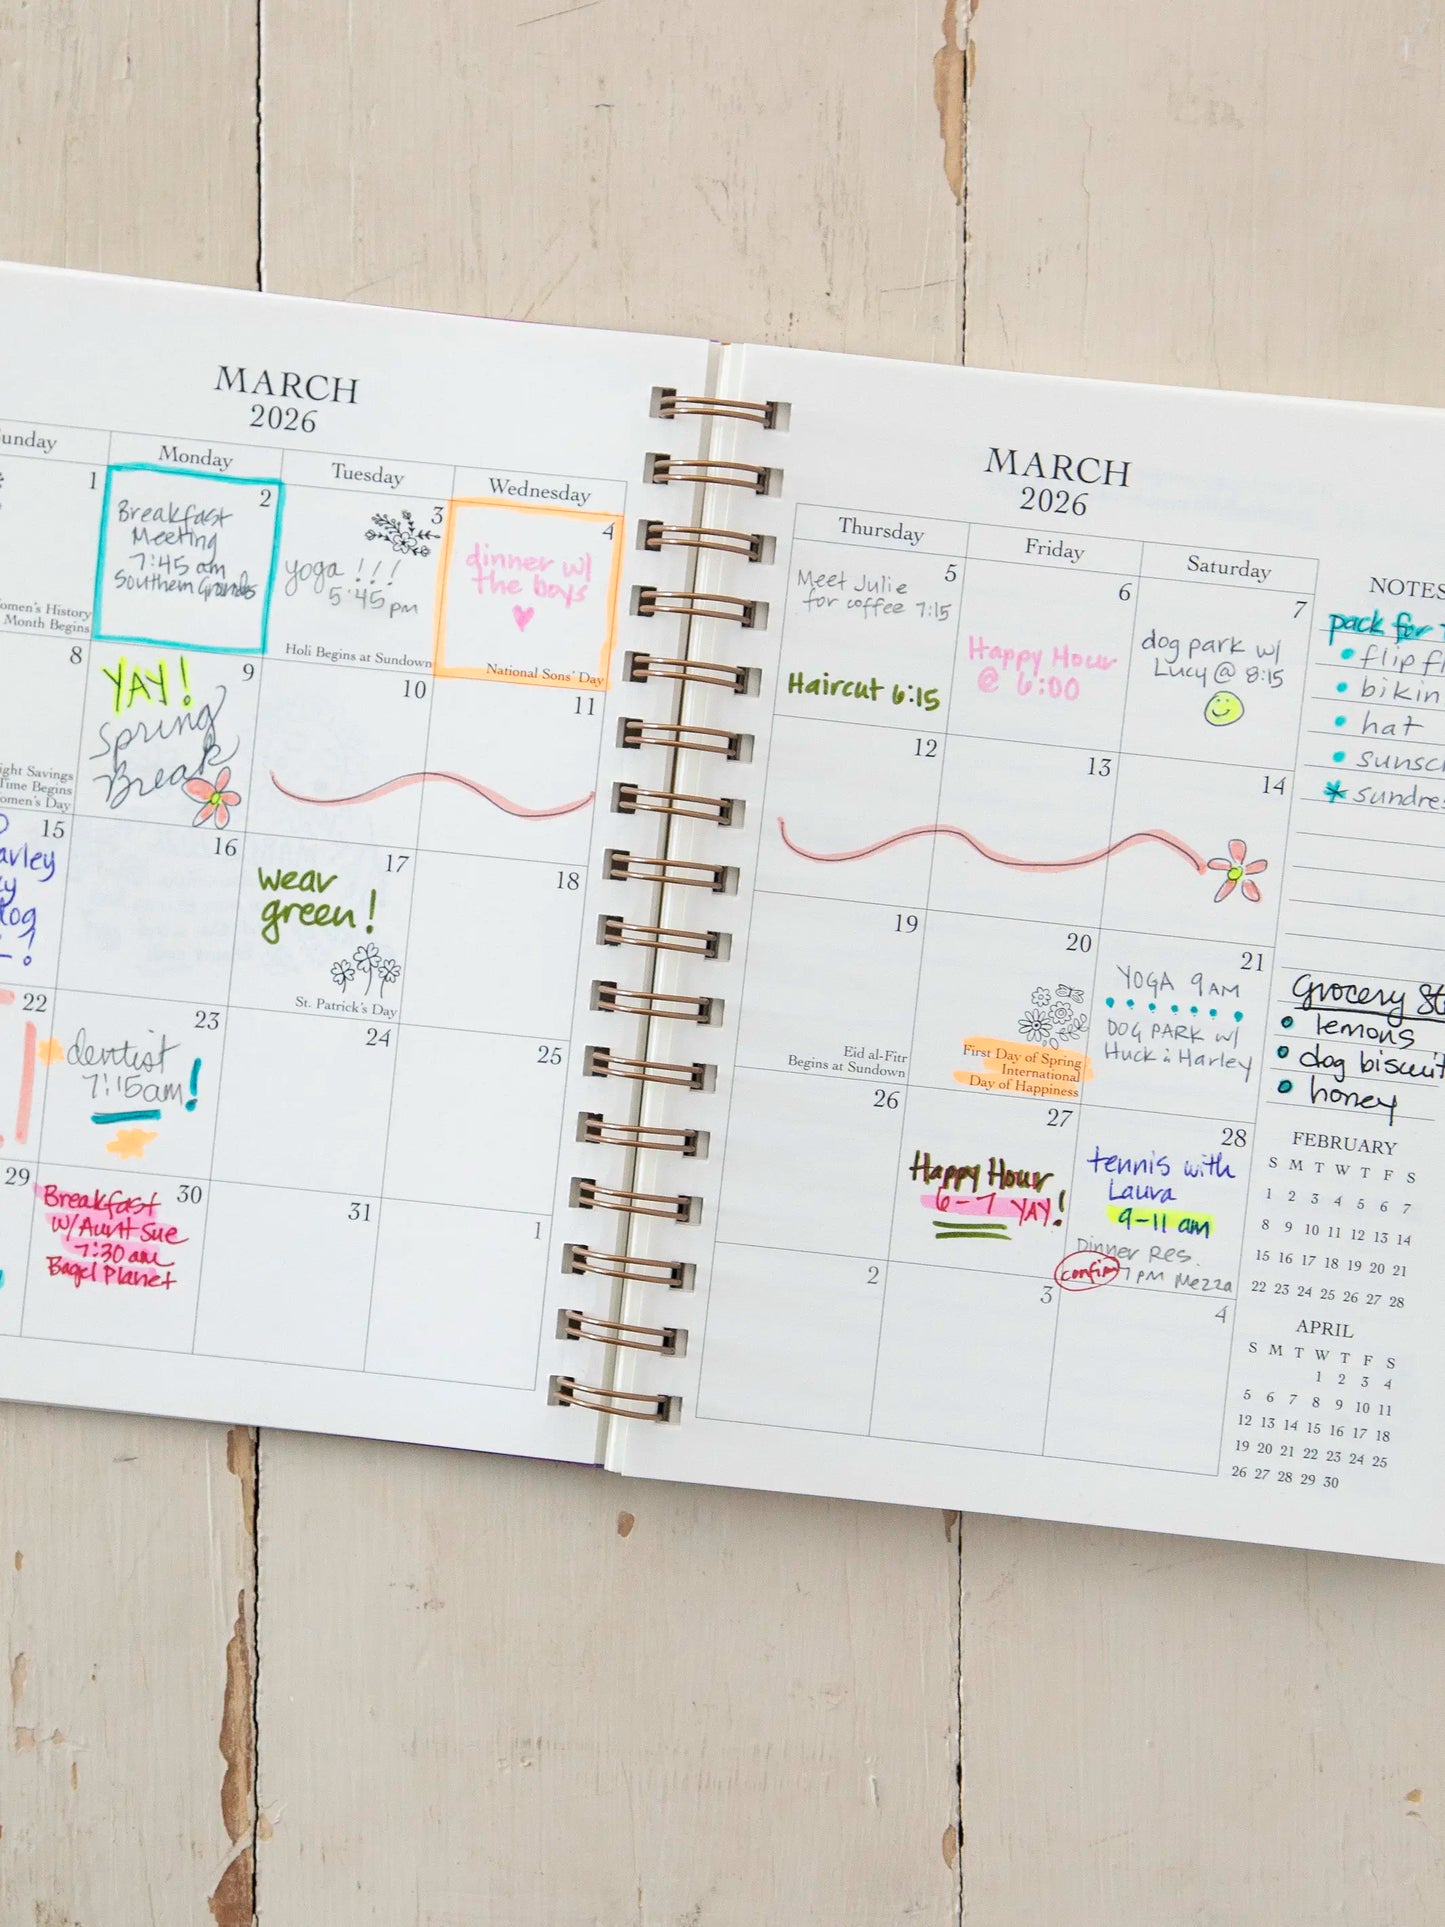 MARCH
2026
Monday
Tuesday
Wednesday
1
Month Begins
2
Breakfast
Meeting
7:45 am
Southern Grounds
3
yoga !!!
5:45 pm
Holi Begins at Sundown
4
dinner w/
the boys
National Sons' Day
8
Time Begins
9
YAY!
Spring
Break
10
11
15
16
17
wear
green!
St. Patrick's Day
18
22
23
dentist
7:15am!
24
25
29
30
Breakfast
w/Aunt Sue
7:30 am
Bagel Planet
31
1
MARCH
2026
Thursday
Friday
Saturday
5
Meet Julie
for coffee 7:15
Haircut 6:15
6
Happy Hour
@ 6:00
7
dog park w/
Lucy @ 8:15
12
13
14
19
Eid al-Fitr
Begins at Sundown
20
First Day of Spring
International
Day of Happiness
21
YOGA 9AM
DOG PARK w/
Huck & Harley
26
27
Happy Hour
6-7 YAY!
28
tennis with
Laura
9-11 am
Dinner Res.
confirm 7 PM Mezza
2
3
4
NOTES
pack for
hat
Grocery
lemons
dog biscuit
honey
FEBRUARY
S M T W T F S
1 2 3 4 5 6 7
8 9 10 11 12 13 14
15 16 17 18 19 20 21
22 23 24 25 26 27 28
APRIL
S M T W T F S
1 2 3 4
5 6 7 8 9 10 11
12 13 14 15 16 17 18
19 20 21 22 23 24 25
26 27 28 29 30